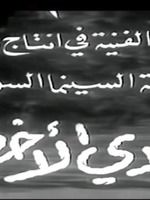 الفنية في انتاج
ة السينما السو
دي الأخضـ